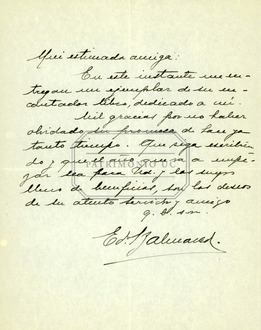 Mui estimada amiga:
En este instante me en-
tregan un ejemplar de su en-
cantador libro, dedicado a mí.
Mil gracias por no haber
olvidado su promesa de hace ya
tanto tiempo. Que siga escribien-
do y que el año a
zar sea para Ud. y los suyos
lleno de beneficios, son los deseos
de su atento servidor y amigo
q. b. s. m.
Ed. Balmaceda.
PATRIMONIO UC